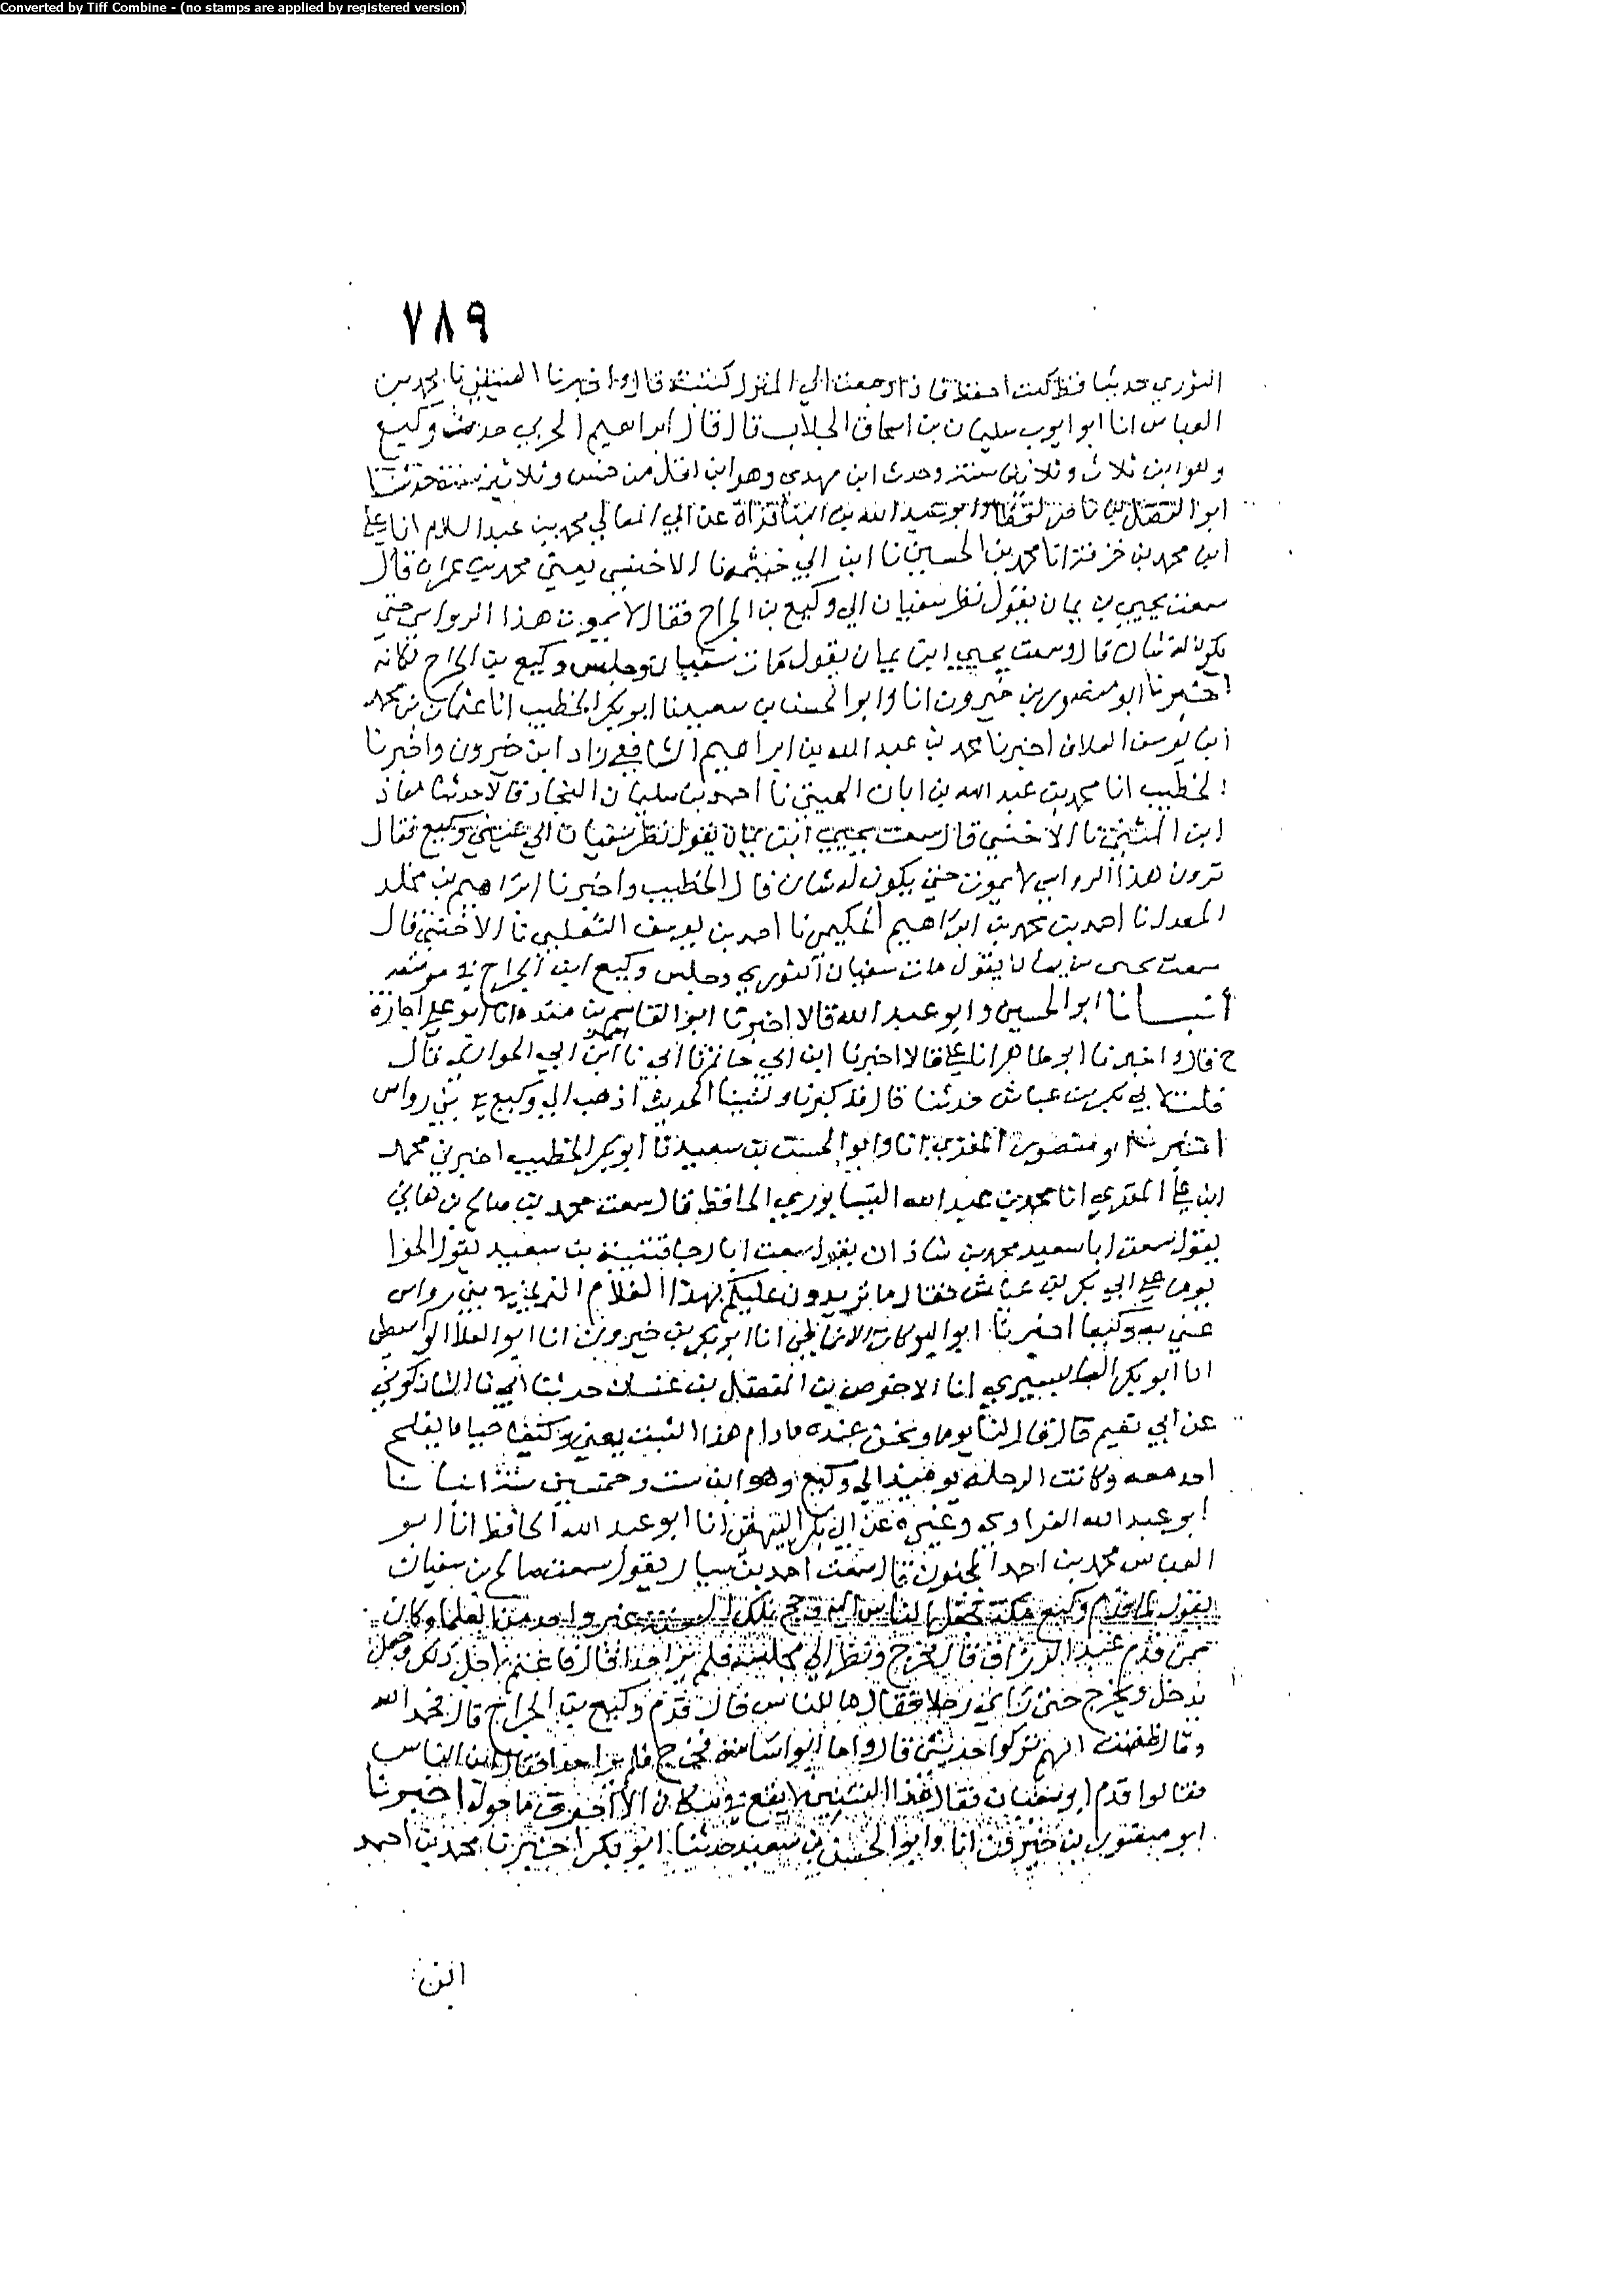 Converted by Tiff Combine - (no stamps are applied by registered version)
٧٨٩
الثوري حديثا قط كنت احفظ فاذا رجعت الي المنزل كتبته قال واخبرنا العتيقي نا محمد بن
العباس انا ابو ايوب سليمان بن اسحاق الجلاب قال قال ابراهيم الحربي حدث وكيع
وهو ابن ثلاث وثلاثين سنة وحدث ابن مهدي وهو ابن اقل من خمس وثلاثين سنة حدثنا
ابو الفضل بن ناصر لفظا وابو عبد الله بن البنا قراة عن ابي المعالي محمد بن عبد السلام انا علي
ابن محمد بن خزفة انا محمد بن الحسين نا ابن ابي خيثمة نا الاخنسي يعني محمد بن عمران قال
سمعت يحيي بن يمان يقول نظر سفيان الي وكيع بن الجراح فقال لا يموت هذا الرواسي حتي
يكون له شان قال وسمعت يحيي ابن يمان يقول مات سفيان وجلس وكيع بن الجراح مكانه
اخبرنا ابو منصور بن خيرون انا وابو الحسن بن سعيد نا ابو بكر الخطيب انا عثمان بن محمد
ابن يوسف العلاف اخبرنا محمد بن عبد الله بن ابراهيم الشافعي زاد ابن خيرون واخبرنا
الخطيب انا محمد بن عبد الله بن ابان الهيتي نا احمد بن سليمان النجاد قالا حدثنا معاذ
ابن المثني نا الاخنسي قال سمعت يحيي ابن يمان يقول نظر سفيان الي عيني وكيع فقال
ترون هذا الرواسي لا يموت حتي يكون له شان قال الخطيب واخبرنا ابراهيم بن مخلد
المعدل نا احمد بن محمد بن ابراهيم الحكيمي نا احمد بن يوسف التغلبي نا الاخنسي قال
سمعت يحيى بن يمان يقول مات سفيان الثوري وجلس وكيع ابن الجراح في موضعه
أنبانا ابو الحسين وابو عبد الله قالا اخبرنا ابو القاسم بن منده انا ابو علي اجازة
ح قال واخبرنا ابو طاهر انا علي قالا اخبرنا ابن ابي حاتم نا ابي نا احمد ابن ابي الحواري قال
قلت لابي بكر بن عياش حدثنا قال قد كبرنا ونسينا الحديث اذهب الي وكيع في بني رواس
اخبرنا ابو منصور المقري انا وابو الحسن بن سعيد نا ابو بكر الخطيب اخبرني محمد
ابن علي المقري انا محمد بن عبد الله النيسابوري الحافظ قال سمعت محمد بن صالح بن هاني
يقول سمعت ابا سعيد محمد بن شاذان يقول سمعت ابا رجا قتيبة بن سعيد يقول الحوا
يوما علي ابي بكر بن عياش فقال ما تريدون عليكم بهذا الغلام الذي في بني رواس
عني به وكيعا اخبرنا ابو البركات الانماطي انا ابو بكر بن خيرون انا ابو العلا الواسطي
انا ابو بكر البابسيري انا الاحوص بن المفضل بن غسان حدثنا ابي نا الشاذكوني
عن ابي نعيم قال قال لنا يوما ونحن عنده ما دام هذا الثبت يعني وكيعا حيا ما يفلح
احد معه وكانت الرحلة يومئذ الي وكيع وهو ابن ست وخمسين سنة انبانا
ابو عبد الله الفراوي وغيره عن ابي بكر البيهقي انا ابو عبد الله الحافظ انا ابو
العباس محمد بن احمد المحبوبي قال سمعت احمد بن سيار يقول سمعت صالح بن سفيان
يقول لما قدم وكيع مكة انجفل الناس اليه وحج تلك السنة غير واحد من العلما وكان
ممن قدم عبد الرزاق قال فخرج ونظر الي مجلسه فلم ير احدا قال فاغتم من اجل ذلك وجعل
يدخل ويخرج حتي راي رجلا فقال ما للناس قال قدم وكيع بن الجراح قال فحمد الله
وقال ظننت انهم تركوا حديثي قال واما ابو اسامة فخرج فلم ير احدا فقال اين الناس
فقالوا قدم ابو سفيان فقال هذا التنين لا يقع في مكان الا احرق ما حوله اخبرنا
ابو منصور بن خيرون انا وابو الحسن بن سعيد حدثنا ابو بكر اخبرنا محمد بن احمد
ابن